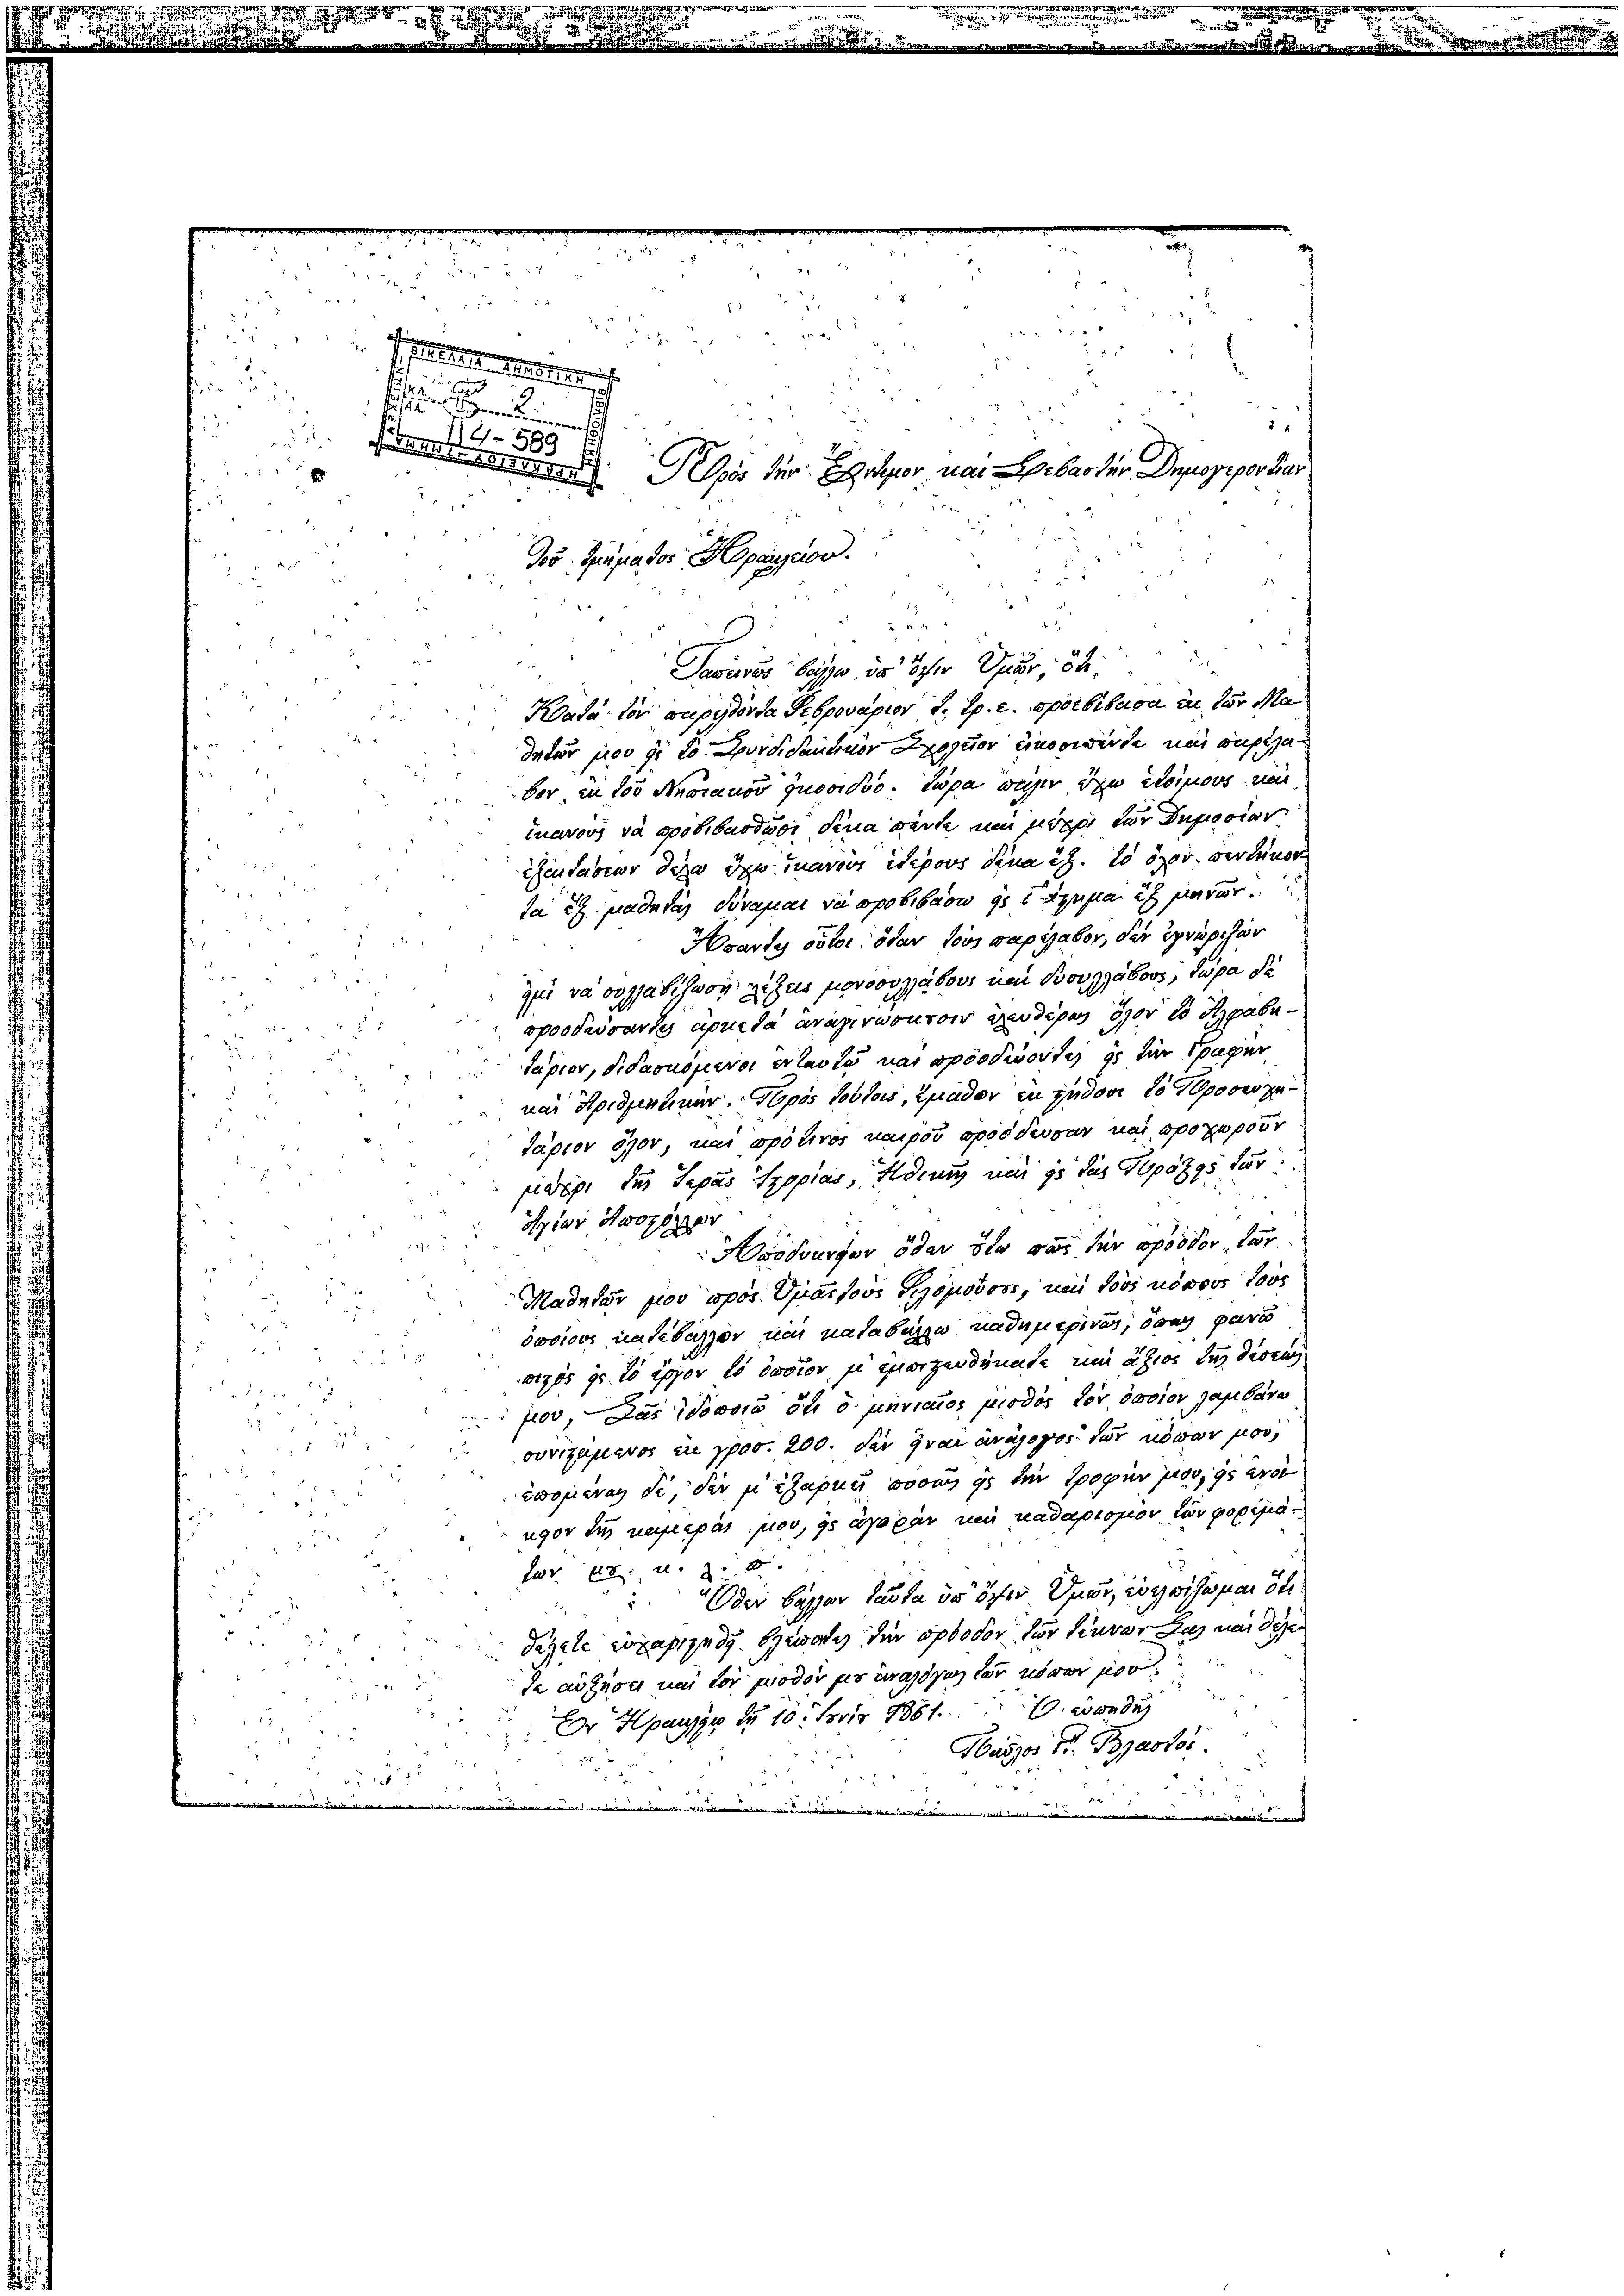 ΒΙΚΕΛΑΙΑ ΔΗΜΟΤΙΚΗ
2
114-589
Πρὸς τὴν Ἔντιμον καὶ Σεβαστὴν Δημογεροντίαν
τοῦ τμήματος Ἡρακλείου.
Ταπεινῶς βάλλω ὑπ' ὄψιν Ὑμῶν, ὅτι
Κατὰ τὸν παρελθόντα Φεβρουάριον τ. τρ. ε. προεβίβασα ἐκ τῶν Μα-
θητῶν μου εἰς τὸ Συνδιδακτικὸν Σχολεῖον εἰκοσιπέντε καὶ παρέλα-
βον ἐκ τοῦ Νηπιακοῦ εἰκοσιδύο. τώρα πάλιν ἔχω ἑτοίμους καὶ
ἱκανοὺς νὰ προβιβασθῶσι δέκα πέντε καὶ μέχρι τῶν Δημοσίων
ἐξετάσεων θέλω ἔχω ἱκανοὺς ἑτέρους δέκα ἕξ. τὸ ὅλον πεντήκον-
τα ἓξ μαθητὰς δύναμαι νὰ προβιβάσω εἰς διάστημα ἓξ μηνῶν.
Ἅπαντες οὗτοι ὅταν τοὺς παρέλαβον, δὲν ἐγνώριζον
εἰμὶ νὰ συλλαβίζωσι λέξεις μονοσυλλάβους καὶ δυσυλλάβους, τώρα δὲ
προοδεύσαντες ἀρκετὰ ἀναγινώσκουσιν ἐλευθέρως ὅλον τὸ Ἀλφαβη-
τάριον, διδασκόμενοι ἐνταυτῷ καὶ προοδεύοντες εἰς τὴν Γραφὴν
καὶ Ἀριθμητικήν. Πρὸς τούτοις, ἔμαθον ἐκ στήθους τὸ Προσευχη-
τάριον ὅλον, καὶ πρό τινος καιροῦ προόδευσαν καὶ προχωροῦν
μέχρι τῆς Ἱερᾶς Ἱστορίας, Ἠθικῆς καὶ εἰς τὰς Πράξεις τῶν
Ἁγίων Ἀποστόλων
Ἀποδεικνύων ὅθεν οὕτω πως τὴν πρόοδον τῶν
Μαθητῶν μου πρὸς Ὑμᾶς τοὺς Φιλομούσους, καὶ τοὺς κόπους τοὺς
ὁποίους κατέβαλλον καὶ καταβάλλω καθημερινῶς, ὅπως φανῶ
πιστὸς εἰς τὸ ἔργον τὸ ὁποῖον μὲ ἐμπιστευθήκατε καὶ ἄξιος τῆς θέσεώς
μου, Σᾶς εἰδοποιῶ ὅτι ὁ μηνιαῖος μισθὸς τὸν ὁποῖον λαμβάνω
συνιστάμενος ἐκ γροσ. 200. δὲν εἶναι ἀνάλογος τῶν κόπων μου,
ἑπομένως δέ, δὲν μ' ἐξαρκεῖ ποσῶς εἰς τὴν τροφήν μου, εἰς ἐνοί-
κιον τῆς καμεράς μου, εἰς ἀγορὰν καὶ καθαρισμὸν τῶν φορεμά-
των κ. λ. π.
Ὅθεν βάλλων ταῦτα ὑπ' ὄψιν Ὑμῶν, εὐελπίζωμαι ὅτι
θέλετε εὐχαριστηθῇ βλέποντες τὴν πρόοδον τῶν τέκνων Σας καὶ θέλε-
τε αὐξήσει καὶ τὸν μισθόν μου ἀναλόγως τῶν κόπων μου.
Ἐν Ἡρακλείῳ τῇ 10 Ἰουνίου 1861. Ὁ εὐπειθὴς
Παῦλος Γ. Βλαστός.